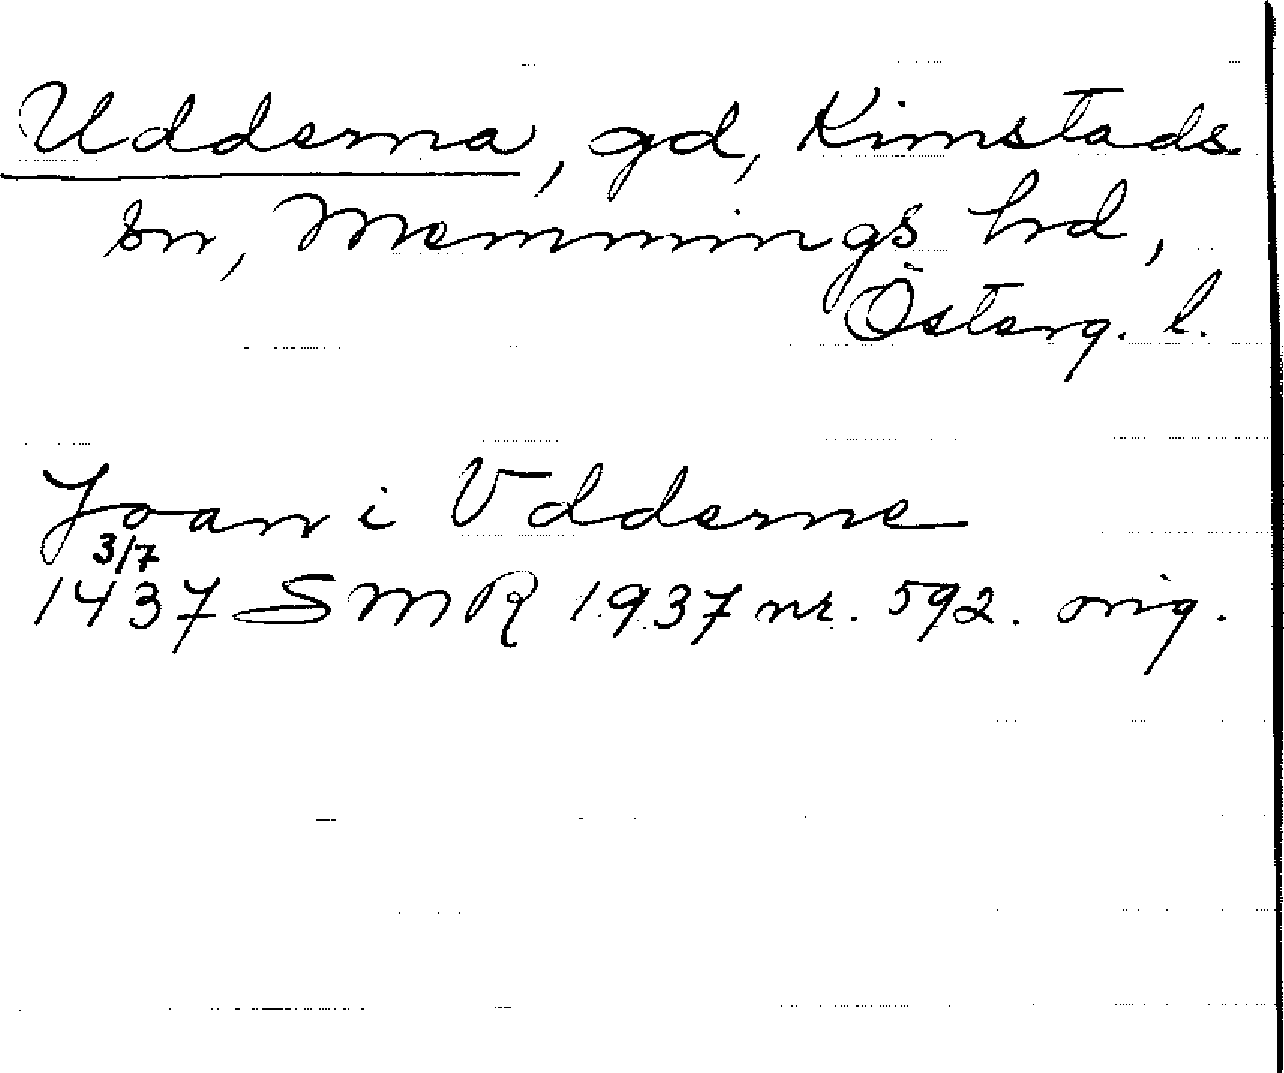 Udderna, gd, Kimstads
sn, Memmings hd,
Österg. l.
Joan i Vdderne
3/7
1437 SMR 1937 nr. 592. orig.